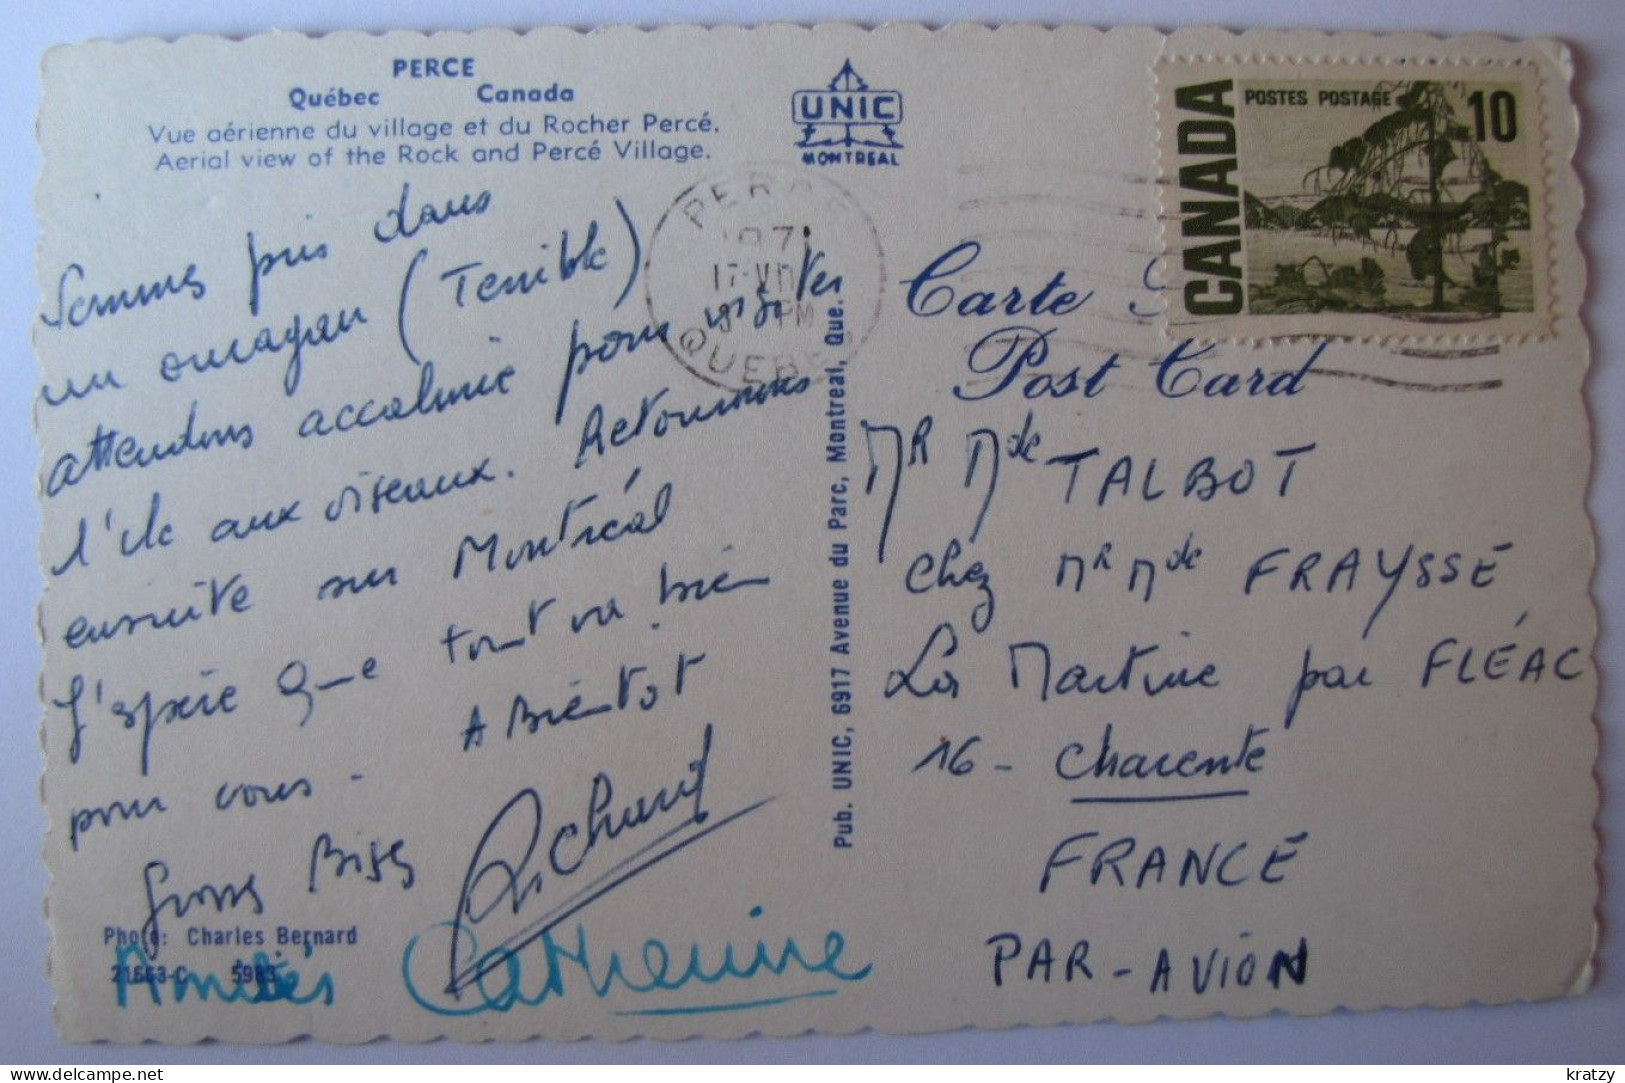 PERCE
Québec Canada
Vue aérienne du village et du Rocher Percé.
Aerial view of the Rock and Percé Village.
UNIC
MONTREAL
Sommes pris dans
un ouragan (Terrible)
attendons accalmie pour visiter
l'ile aux oiseaux. Retournons
ensuite sur Montréal
J'espère que tout va bien
pour vous - A Bientot
Gross Bises Richard
Photo: Charles Bernard
21663-C
Amitiés Catherine
Pub. UNIC, 6917 Avenue du Parc, Montreal, Que.
QUEBEC
17-VII
PM
CANADA
POSTES POSTAGE
10
Carte
Post Card
MR Mde TALBOT
chez MR Mde FRAYSSE
La Martine par FLÉAC
16 - Charente
FRANCE
PAR-AVION
kratzy